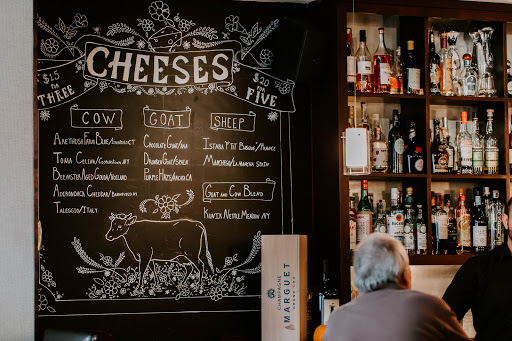 CHEESES
$15 for THREE
$20 for FIVE
COW
GOAT
SHEEP
ARETHUSA FARM BLUE/CONNECTICUT
TOMA CELENA/COOPERSTOWN NY
BREWSTER AGED GOUDA/HOLLAND
ADIRONDACK CHEDDAR/BARNEVELD NY
TALEGGIO/ITALY
CHOCOLATE GOAT/
DRUNKEN GOAT/SPAIN
PURPLE HAZE/ARCATA CA
/FRANCE
MANCHEGO/LA MANCHA SPAIN
GOAT AND COW BLEND
KUNIK NETTLE MEADOW/NY
CHAMPAGNE
MARGUET